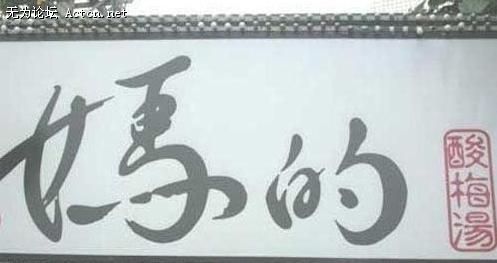 无为论坛 Actcn.net
媽的
酸梅湯